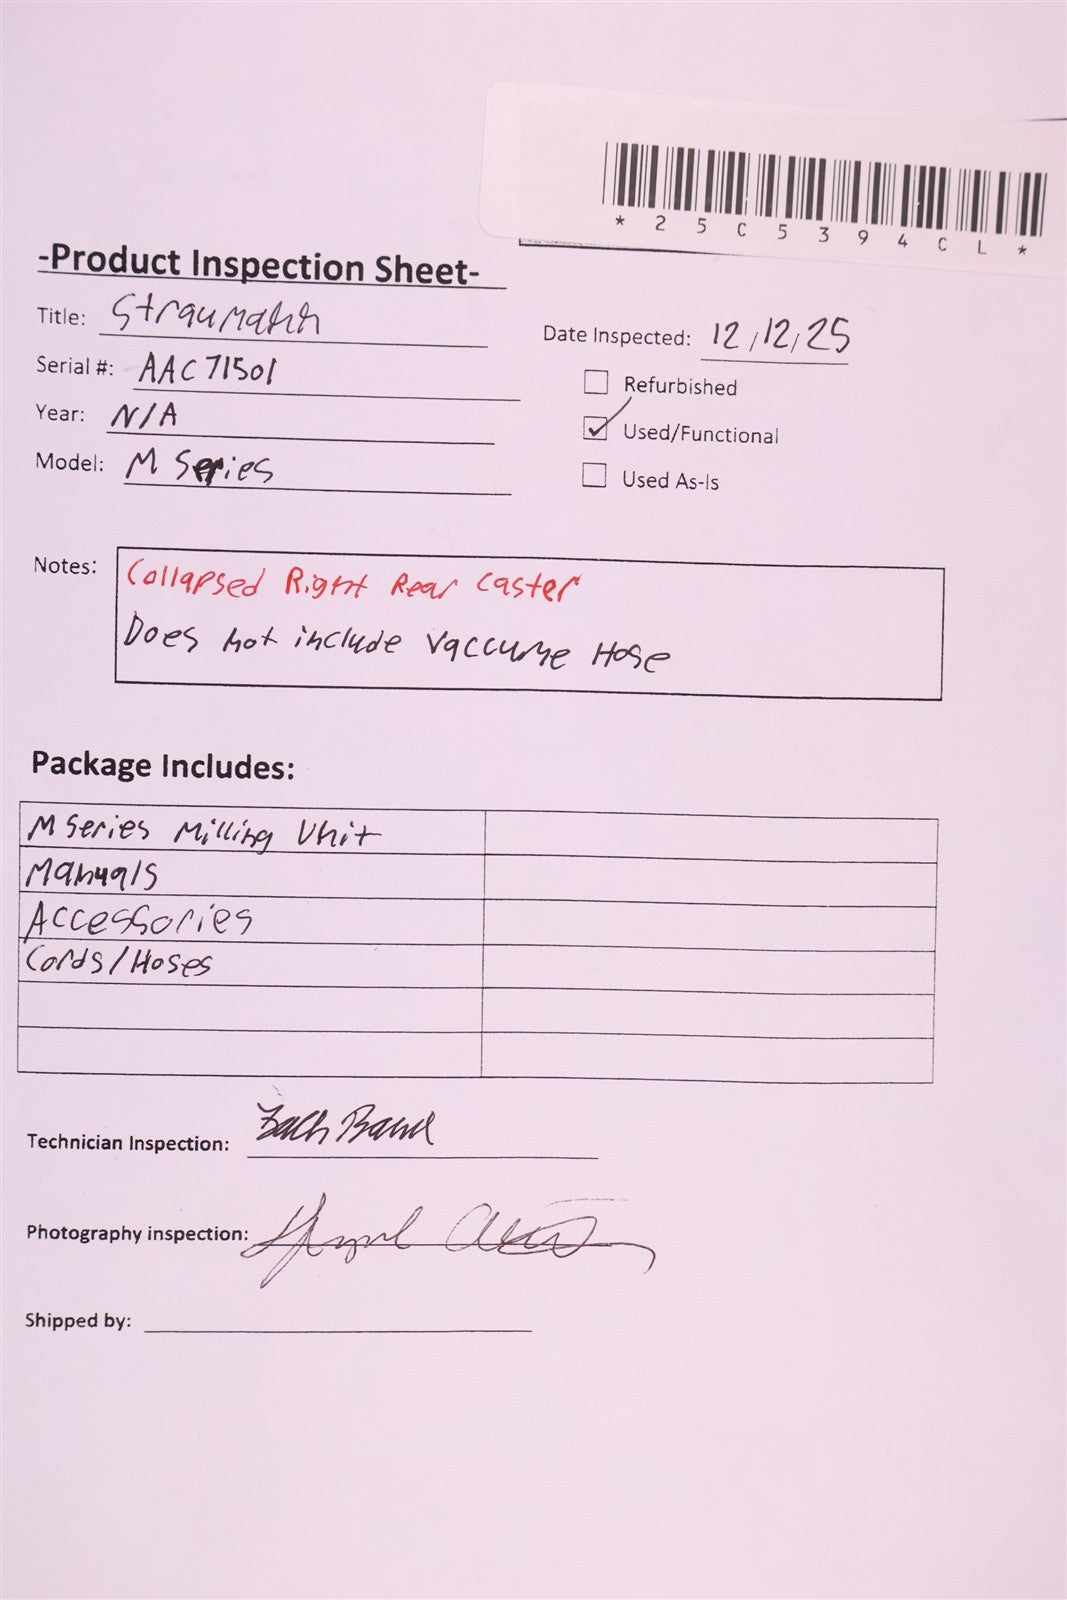 *25C5394CL*
-Product Inspection Sheet-
Title: Straumann
Date Inspected: 12/12/25
Serial #: AAC71501
Refurbished
Year: N/A
Used/Functional
Model: M Series
Used As-Is
Notes: Collapsed Right Rear Caster
Does not include Vaccume Hose
Package Includes:
M Series Milling Unit
Manuals
Accessories
Cords/Hoses
Technician Inspection: Zach
Photography inspection:
Shipped by: